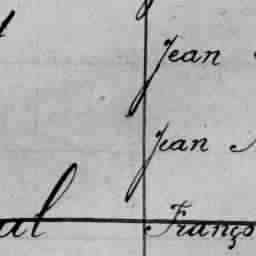 Jean
Jean
al Franço